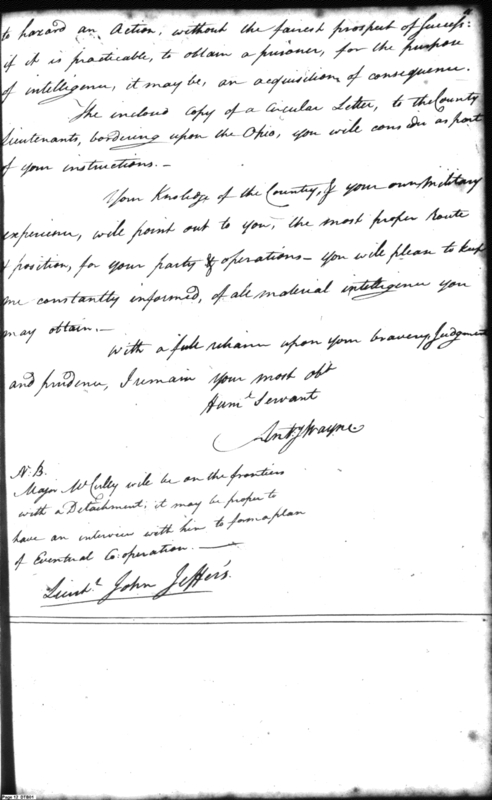 to hazard an Action, without the fairest prospect of Success:
if it is practicable, to obtain a prisoner, for the purpose
of intelligence, it may be, an acquisition of consequence.
The inclosd Copy of a Circular Letter, to the County
Lieutenants, bordering upon the Ohio, you will consider as part
of your instructions.—
Your Knoledge of the Country, & your own Military
experience, will point out to you, the most proper route
& position, for your party & operations— you will please to keep
me constantly informed, of all material intelligence you
may obtain.—
With a full reliance upon your bravery, Judgment
and prudence, I remain your most obt
Huml Servant
Anty Wayne
N.B.
Major McCully will be on the frontiers
with a Detachment; it may be proper to
have an interview with him to form a plan
of Eventual Co:operation.—
Lieut. John Jeffers.